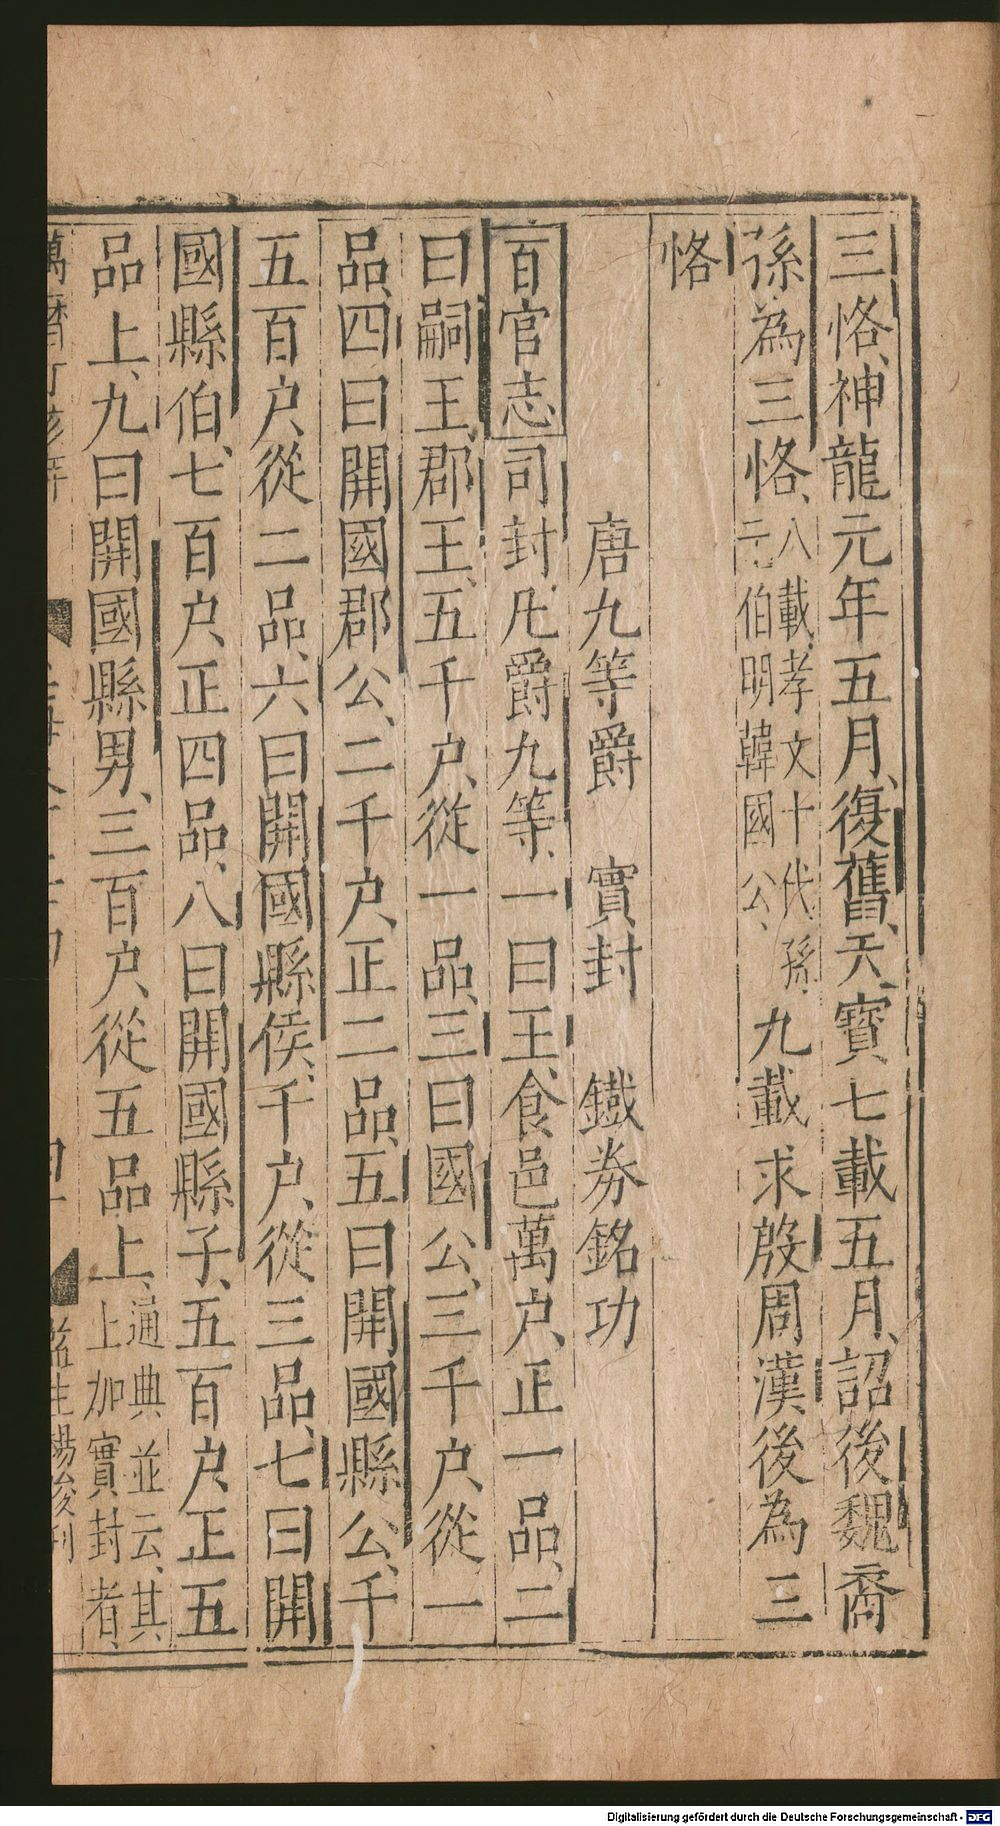 三恪、神龍元年五月、復舊、天寶七載五月、詔後魏裔
孫為三恪、八載、孝文十代孫、元伯明韓國公、九載求殷周漢後為三
恪
唐九等爵 實封 鐵券銘功
百官志司封、凡爵九等、一曰王、食邑萬户、正一品、二
曰嗣王、郡王、五千户、從一品、三曰國公、三千户、從一
品、四曰開國郡公、二千户、正二品、五曰開國縣公、千
五百户、從二品、六曰開國縣侯、千户、從三品、七曰開
國縣伯、七百户、正四品、八曰開國縣子、五百户、正五
品上、九曰開國縣男、三百户、從五品上、通典並云、其上加實封者、
Digitalisierung gefördert durch die Deutsche Forschungsgemeinschaft - DFG